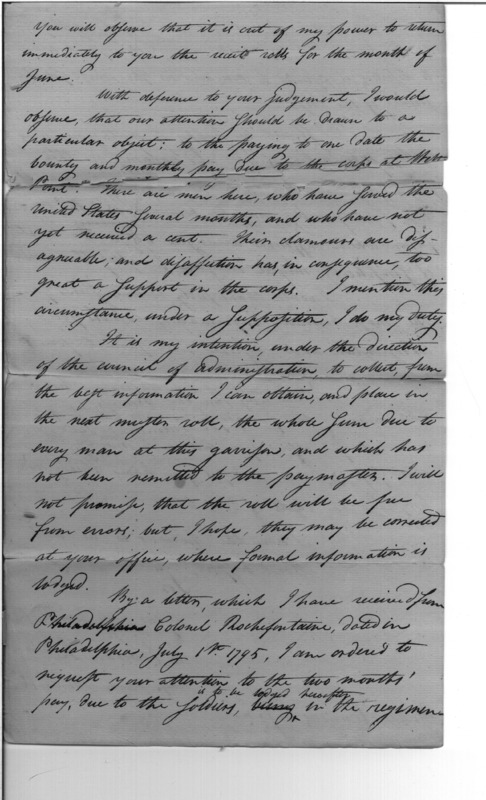 you will observe that it is out of my power to return
immediately to you the receit rolls for the month of
June.
With deference to your judgement, I would
observe, that our attention should be drawn to a
particular object: to the paying to one date the
bounty and monthly pay due to the corps at West
Point. There are men here, who have served the
United States several months, and who have not
yet received a cent. Their clamours are dis-
agreeable; and disaffection has, in consequence, too
great a support in the corps. I mention this
circumstance, under a supposition, I do my duty.
It is my intention, under the direction
of the council of administration, to collect, from
the best information I can obtain, and place in
the next muster roll, the whole sum due to
every man at this garrison, and which has
not been remitted to the paymaster. I will
not promise, that the roll will be free
from errors; but, I hope, they may be corrected
at your office, where formal information is
lodged.
By a letter, which I have received from
Philadelphia Colonel Rochefontaine, dated in
Philadelphia, July 1st 1795, I am ordered to
request your attention to the two months'
is to be lodged hereafter
pay, due to the soldiers, in the regimen